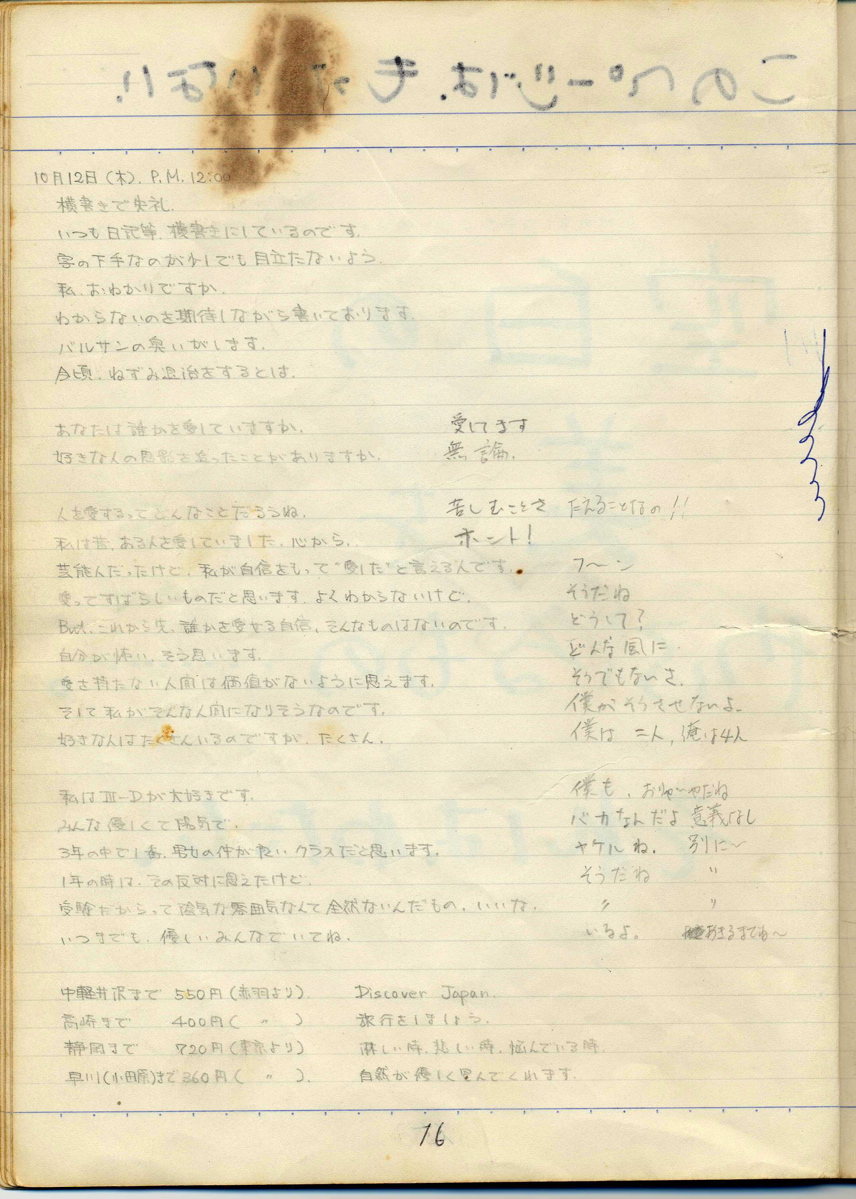 このページは、もったいない、
10月12日(木). P.M. 12:00
横書きで失礼.
いつも日記等、横書きにしているのです.
字の下手なのが少しでも目立たないよう.
私、おわかりですか.
わからないのを期待しながら書いております.
バルサンの臭いがします.
今頃、ねずみ退治をするとは.
あなたは誰かを愛していますか. 愛してます
好きな人の思影を追ったことがありますか. 無論.
人を愛するってどんなことだろうね. 苦しむことさ たえることなの!!
私は昔、ある人を愛していました、心から. ホント!
芸能人だったけど、私が自信をもって“愛した”と言える人です. フ〜ン
愛ってすばらしいものだと思います、よくわからないけど. そうだね
But、これから先、誰かを愛せる自信、そんなものはないのです. どうして?
自分が怖い、そう思います. どんな風に.
愛を持たない人間は価値がないように思えます. そうでもないさ.
そして私がそんな人間になりそうなのです. 僕がそうさせないよ.
好きな人はたくさんいるのですが、たくさん. 僕は 二人, 俺は4人
私はⅢ-Dが大好きです. 僕も、
みんな優しくて陽気で. バカなんだよ 意義なし
3年の中で1番、男女の仲が良いクラスだと思います. ヤケルね. 別に〜
1年の時は、その反対に思えたけど. そうだね 〃
受験だからって陰気な雰囲気なんて全然ないんだもの、いいな. 〃 〃
いつまでも、優しいみんなでいてね. いるよ. あきるまでね〜
中軽井沢まで 550円(赤羽より). Discover Japan.
高崎まで 400円( 〃 ) 旅行をしましょう.
静岡まで 720円(東京より) 淋しい時、悲しい時、悩んでいる時.
早川(小田原)まで 360円( 〃 ). 自然が優しく包んでくれます.
16